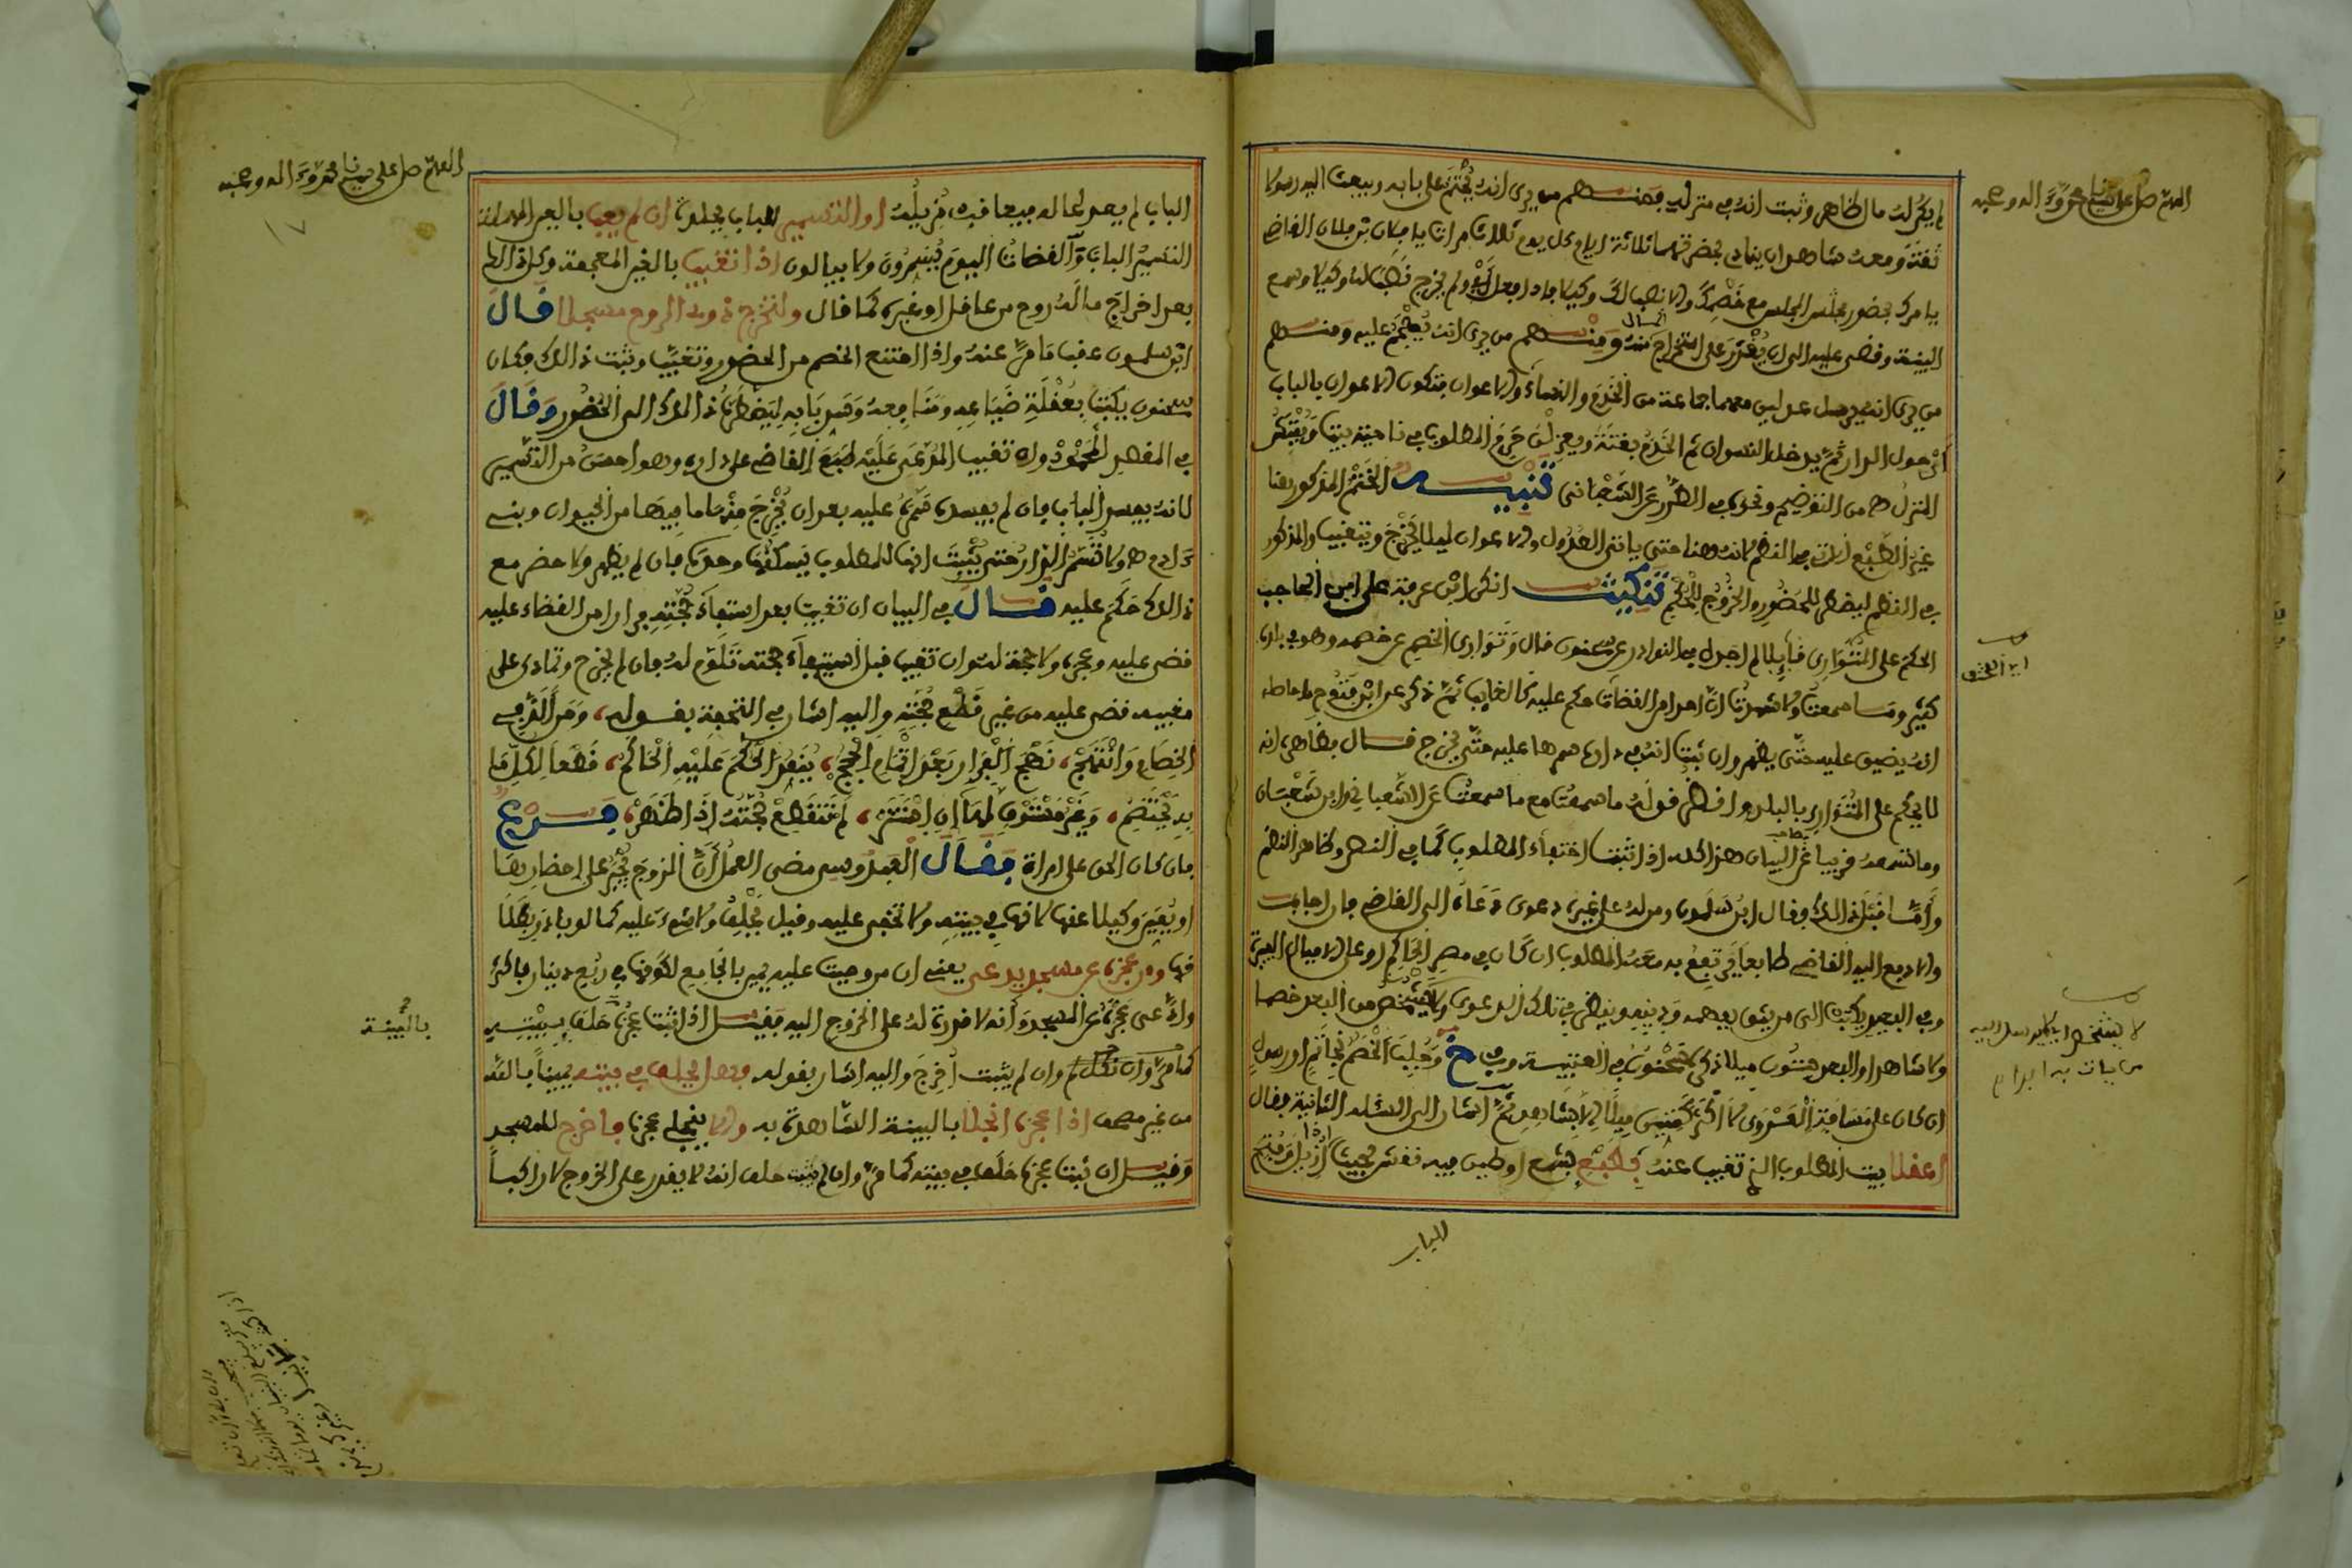 اللهم صل على سيدنا محمد وآله وصحبه
لم يكن له مال ظاهر وثبت أنه في منزله فمنهم من يرى أنه يختم على بابه ويبعث إليه رسولا
ثقة ومعه شاهدان ينادي بحضرتهما ثلاثة أيام كل يوم ثلاث مرات يا فلان بن فلان القاضي
يامرك بحضور مجلس مع خصمك وإلا نصب لك وكيلا فإذا فعل ولم يخرج نصب له وكيلا وسمع
البينة وقضى عليه إلى أن يقدر على استخراج المال منه ومنهم من يرى أنه يهجم عليه ومنهم
من يرى أنه يرسل عدلين معهما جماعة من الخدم والنساء والأعوان فتكون الأعوان بالباب
أو حول الدار ثم يدخل النسوان ثم الخدم بغتة ويعزلن حرم المطلوب في ناحية بيت ويفتش
المنزل من التوضيح ونحوه في الطرر عن الشعباني تنبيه الختم المذكور هنا
غير الطبع الآتي في النظم لانه هنا حتى ياتي العدول والأعوان ليلا يخرج ويتغيب والمذكور
في النظم ليضطر للحضور والخروج للحكم تنكيت انكر ابن عرفة على ابن الحاجب
الحكم على المتوارى قائلا لم أجده في النوادر عن سحنون قال وتوارى الخصم عن خصمه وهو في بلده
كثير وما سمعت ولا شهدت أن أحدا من القضاة حكم عليه كالغايب ثم ذكر عن ابن فتوح ما حاصله
انه يضيق عليه حتى يظهر وان ثبت أنه في داره هجم عليه حتى يخرج قال بظاهره انه
لا يحكم على المتوارى بالبلد وانظر قوله ما سمعت مع ما سمعت عن الشعباني وابن شعبان
وما تسمعه قريبا عن البيان هذا كله اذا ثبت اختفاء المطلوب كما في النظر وظاهر النظم
وأما قبل ذلك فقال ابن سلمون ومن له على غيره دعوى دعاه إلى القاضي فان اجابه
وإلا دفع إليه القاضي طابعا يرتفع به معه المطلوب ان كان في مصر الحاكم أو على الأميال اليسيرة
وفي البعيد يكتب إلى من يثق بفهمه ودينه وينظر في تلك الدعوى ولا يشخص من البعد خصما
ولا شاهدا والبعد ستون ميلا ذكره سحنون في العتبية وفي خ وجلب الخصم بخاتم أو رسول
ان كان على مسافة العدوى لا أكثر كستين ميلا إلا بشاهد ثم اشار إلى المسئلة الثانية فقال
اعفلا بيت المطلوب الذي تغيب عنه بطبع بشمع أو طين فيه نقش بحيث إذا أزيل وفتح
الباب
لا يشخص
اللهم صل على سيدنا محمد وآله وصحبه
الباب لم يعد لحاله فيعاقب مزيله أو التسمير للباب يجلو ان لم يعب بالعين المهملة
التسمير الباب والقضاة اليوم يسمرون ولا يبالون اذا تغيب بالغين المعجمة
بعد اخراج ما له روح من عاقل أو غيره كما قال ولتخرج ذوي الروح مسجلا قال
ابن سلمون عقب ما مر عنه واذا امتنع الخصم من الحضور وتغيب وثبت ذلك فكان
سحنون يكتب بعقلة ضياعه ومنافعه وتسمير بابه ليضطره ذلك إلى الحضور وقال
في المقصد المحمود وان تغيب المدعى عليه طبع القاضي على داره وهو أحسن من التسمير
لانه يفسد الباب فان لم يفسده سمره عليه بعد ان يخرج منها ما فيها من الحيوان وبني
آدم ولا تسمر الدار حتى يثبت انها للمطلوب يسكنها وحده فان لم يظهر ولا حضر مع
ذلك حكم عليه قال في البيان ان تغيب بعد استيفاء حجته فرارا من القضاء عليه
قضى عليه وعجزه ولا حجة له وان تغيب قبل استيفاء حججه تلوم له فان لم يخرج وتمادى على
مغيبه قضى عليه من غير قطع حجته وإليه اشار في التحفة بقوله ومن ألد في
الخصام وانتهج نهج الفرار بعد إتمام الحجج ينفذ الحكم عليه الحاكم قطعا لكل ما
به يختصم وغير مستوف لها ان استتر لم تنقطع حجته اذا ظهر فرع
فان كان الحق على امراة فقال العبدوسي مضى العمل أن الزوج يجبر على احضارها
أو يقيم وكيلا عنها لانها في بيته ولا تخفى عليه وقيل يحلف ولا شيء عليه كما لو بادر بطلا
قها ومن عجزه عن مسجد يدعى يعني ان من وجبت عليه يمين بالجامع لكونها في ربع دينار فاكثر
وادعى عجزه عن المسجد وأنه لا قدرة له على الخروج إليه فقيل اذا ثبت عجزه حلف ببيته
كما مر وان نكل وان لم يثبت أخرج واليه اشار بقوله فهل يحلف في بيته يمينا بالله
من غير مصحف اذا عجزه انجلا بالبينة الشاهدة به وإلا ينجلي عجزه فاخرج للمسجد
وقيل ان ثبت عجزه حلف في بيته كما مر وان لم يثبت حلف انه لا يقدر على الخروج لا راكبا
بالبينة